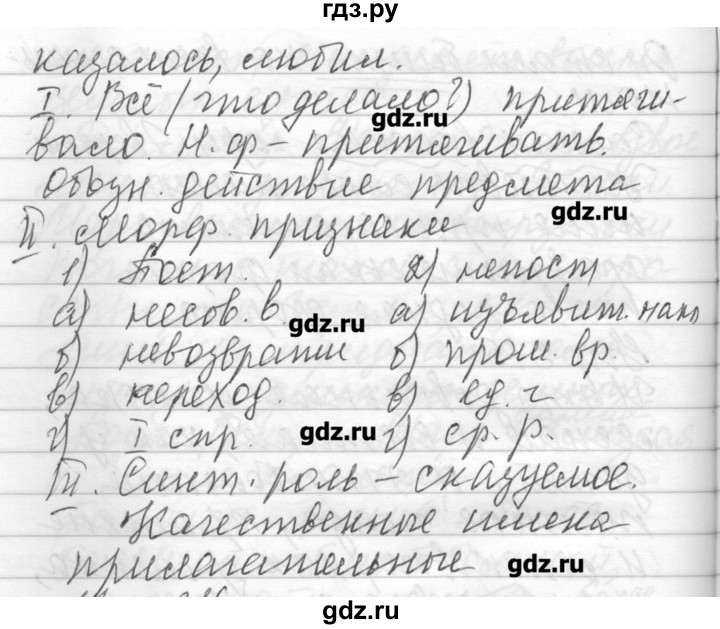 гдз.ру
казалось, любил.
I. Всё (что делало?) притяги-
gdz.ru
вало. Н.ф – притягивать.
Обозн. действие предмета
gdz.ru
II. Морф. признаки
1) Пост. 2) непост
а) несов. в. а) изъявит. накл
gdz.ru
б) невозвратн б) прош. вр.
в) переход. в) ед. ч
г) I спр. г) ср. р.
gdz.ru
III. Синт. роль – сказуемое.
Качественные имена
прилагательные
gdz.ru
gdz.ru